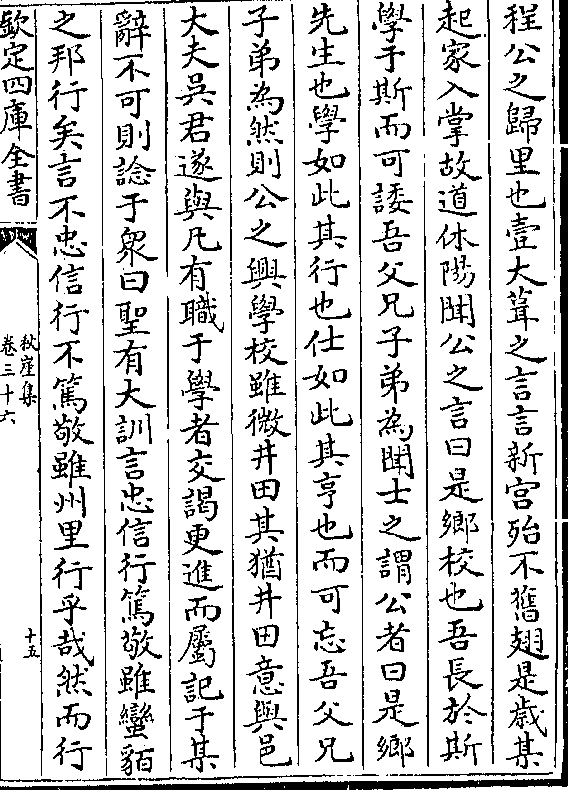 程公之歸里也壹大葺之言言新宫殆不舊翅是歲某
起家入掌故道休陽聞公之言曰是鄉校也吾長於斯
學于斯而可諉吾父兄子弟為聞士之謂公者曰是鄉
先生也學如此其行也仕如此其亨也而可忘吾父兄
子弟為然則公之興學校雖微井田其猶井田意與邑
大夫吳君遂與凡有職于學者交謁更進而屬記于某
辭不可則諗于衆曰聖有大訓言忠信行篤敬雖蠻貊
之邦行矣言不忠信行不篤敬雖州里行乎哉然而行
欽定四庫全書
秋崖集
卷三十六
十五